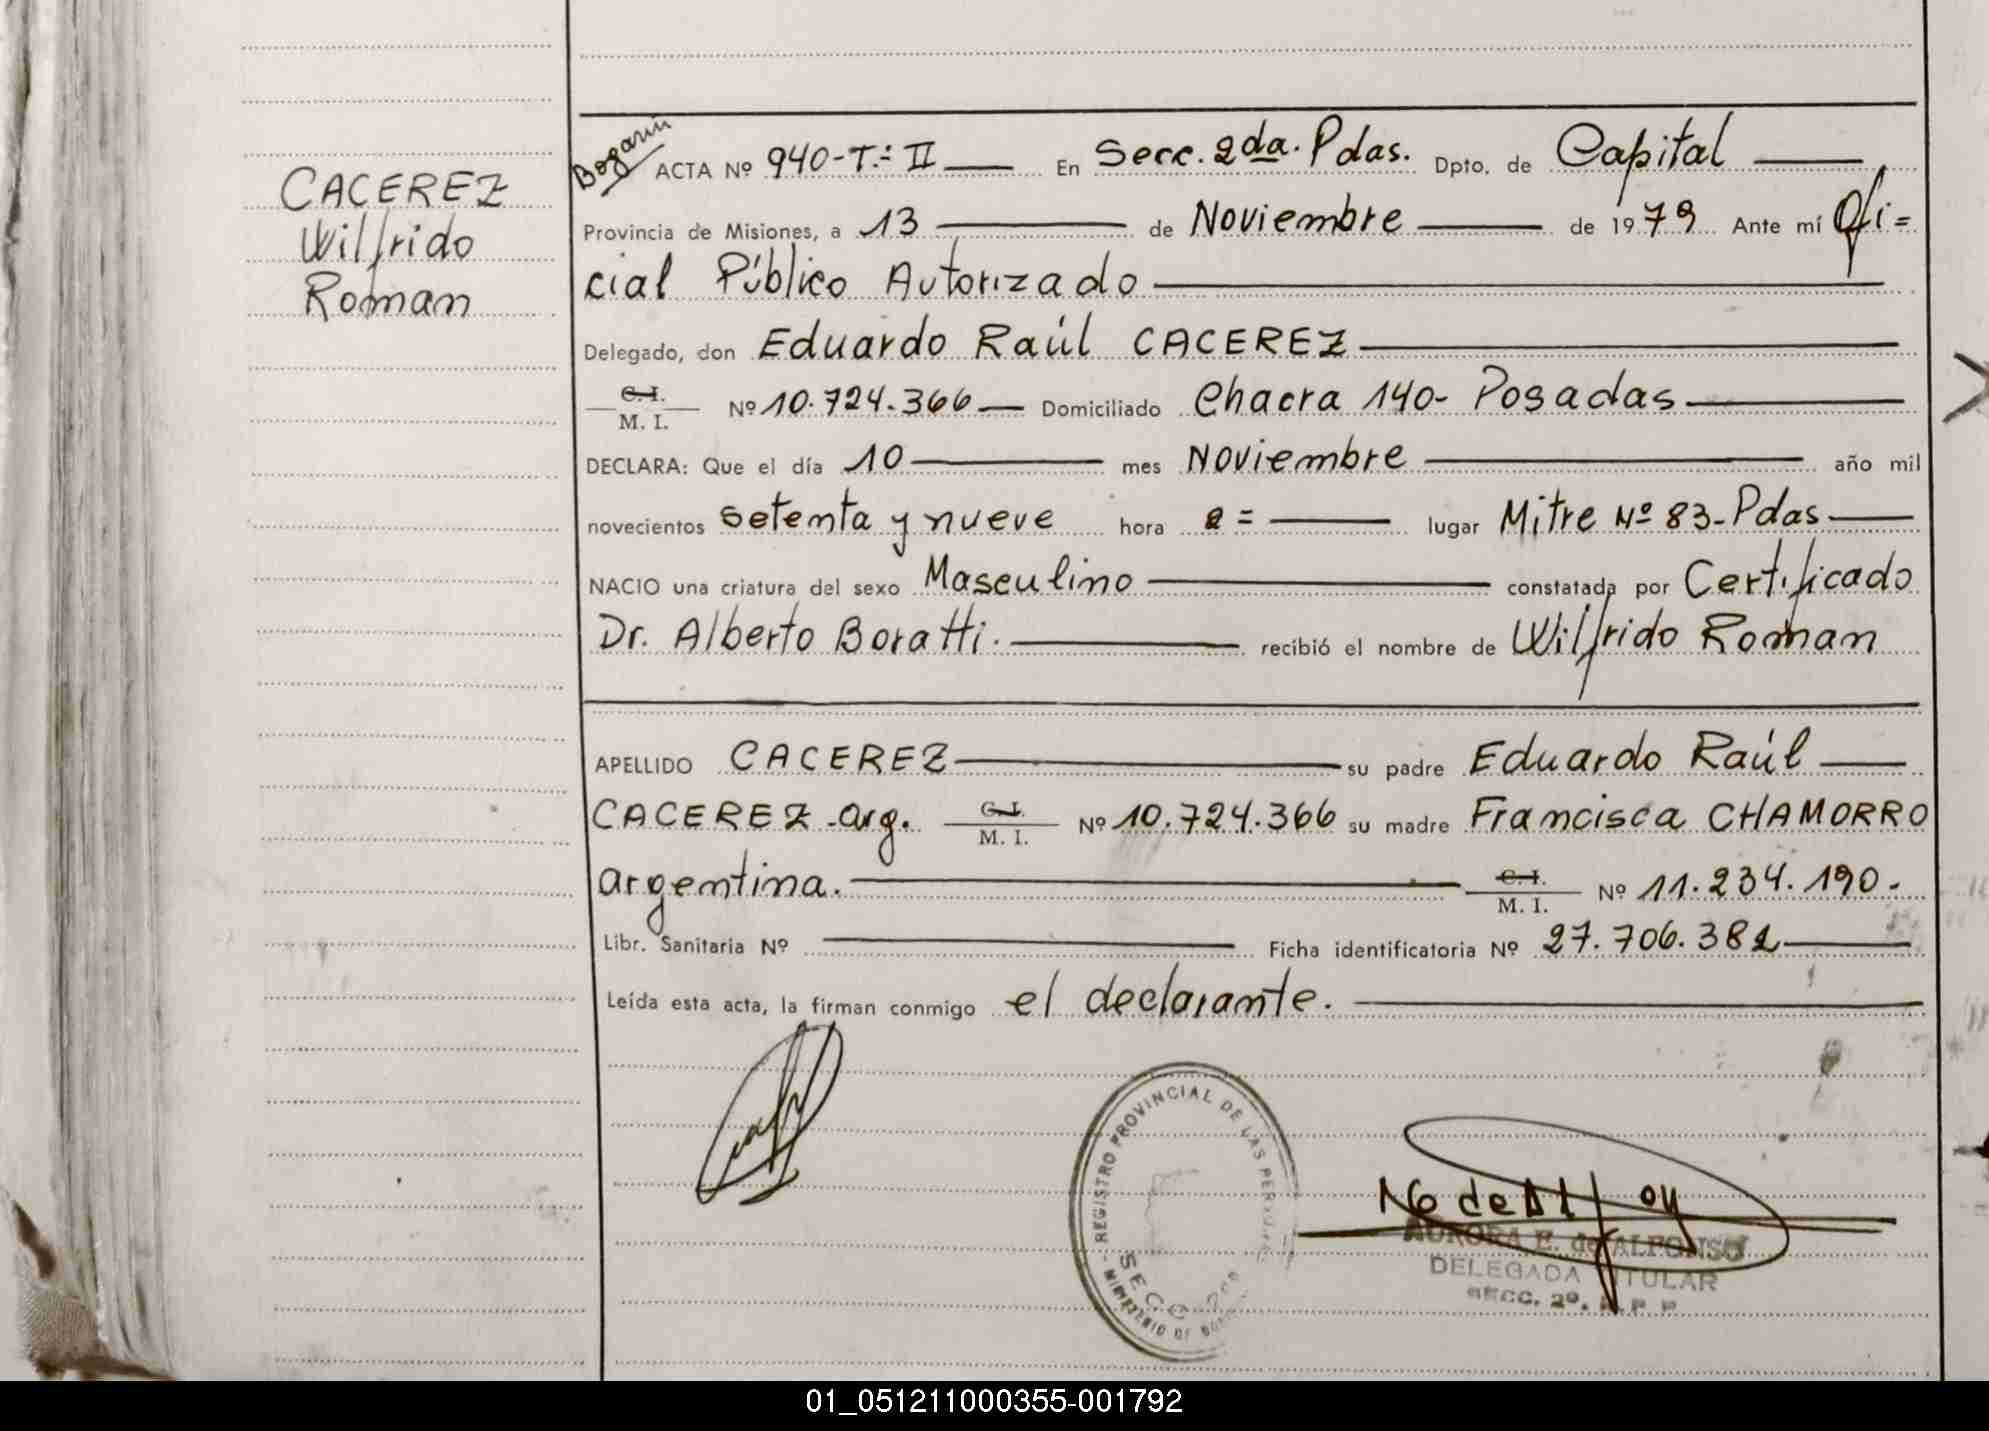 CACEREZ
Wilfrido
Roman
Bogarin
ACTA Nº 940-T.= II En Secc. 2da. Pdas. Dpto. de Capital
Provincia de Misiones, a 13 de Noviembre de 1979 Ante mí Ofi=
cial Público Autorizado
Delegado, don Eduardo Raúl CACEREZ
C.I.
M. I. Nº 10.724.366 Domiciliado Chacra 140- Posadas
DECLARA: Que el día 10 mes Noviembre año mil
novecientos setenta y nueve hora 2= lugar Mitre Nº 83-Pdas
NACIO una criatura del sexo Masculino constatada por Certificado
Dr. Alberto Boratti. recibió el nombre de Wilfrido Roman
APELLIDO CACEREZ su padre Eduardo Raúl
CACEREZ-arg. C.I.
M. I. Nº 10.724.366 su madre Francisca CHAMORRO
argentina. C.I.
M. I. Nº 11.234.190.
Libr. Sanitaria Nº Ficha identificatoria Nº 27.706.382
Leída esta acta, la firman conmigo el declarante.
REGISTRO PROVINCIAL DE LAS PERSONAS
SECC. 2da
MINISTERIO DE
AURORA E. de ALFONSO
DELEGADA TITULAR
SECC. 2º. R P P
01_051211000355-001792